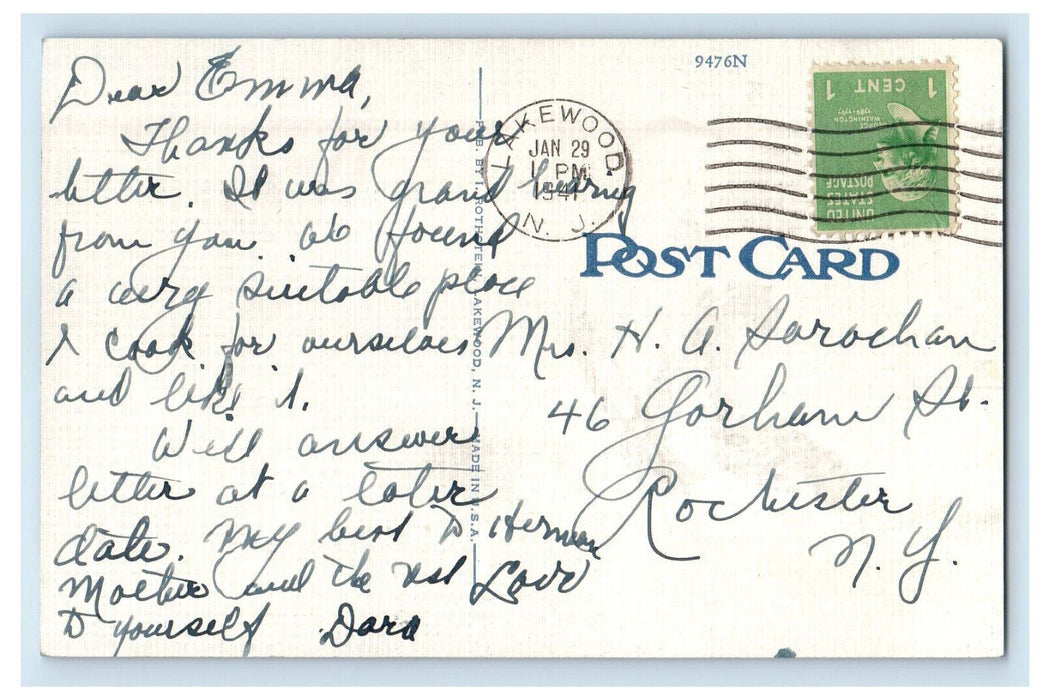 Dear Emma,
Thanks for your
letter. It was grand hearing
from you. We found
a very suitable place
& cook for ourselves
and like it.
Will answer
letter at a later
date. My best to Herman
Mother and the rest Love
to yourself Dora
9476N
LAKEWOOD.
JAN 29
1 PM
1941
N. J.
1 CENT 1
GEORGE
WASHINGTON
1789-1797
UNITED
STATES
POSTAGE
POST CARD
PUB. BY I. ROTHSTEIN, LAKEWOOD, N. J.—MADE IN U.S.A.
Mrs. H. A. Sarachan
46 Gorham St.
Rochester
N.Y.